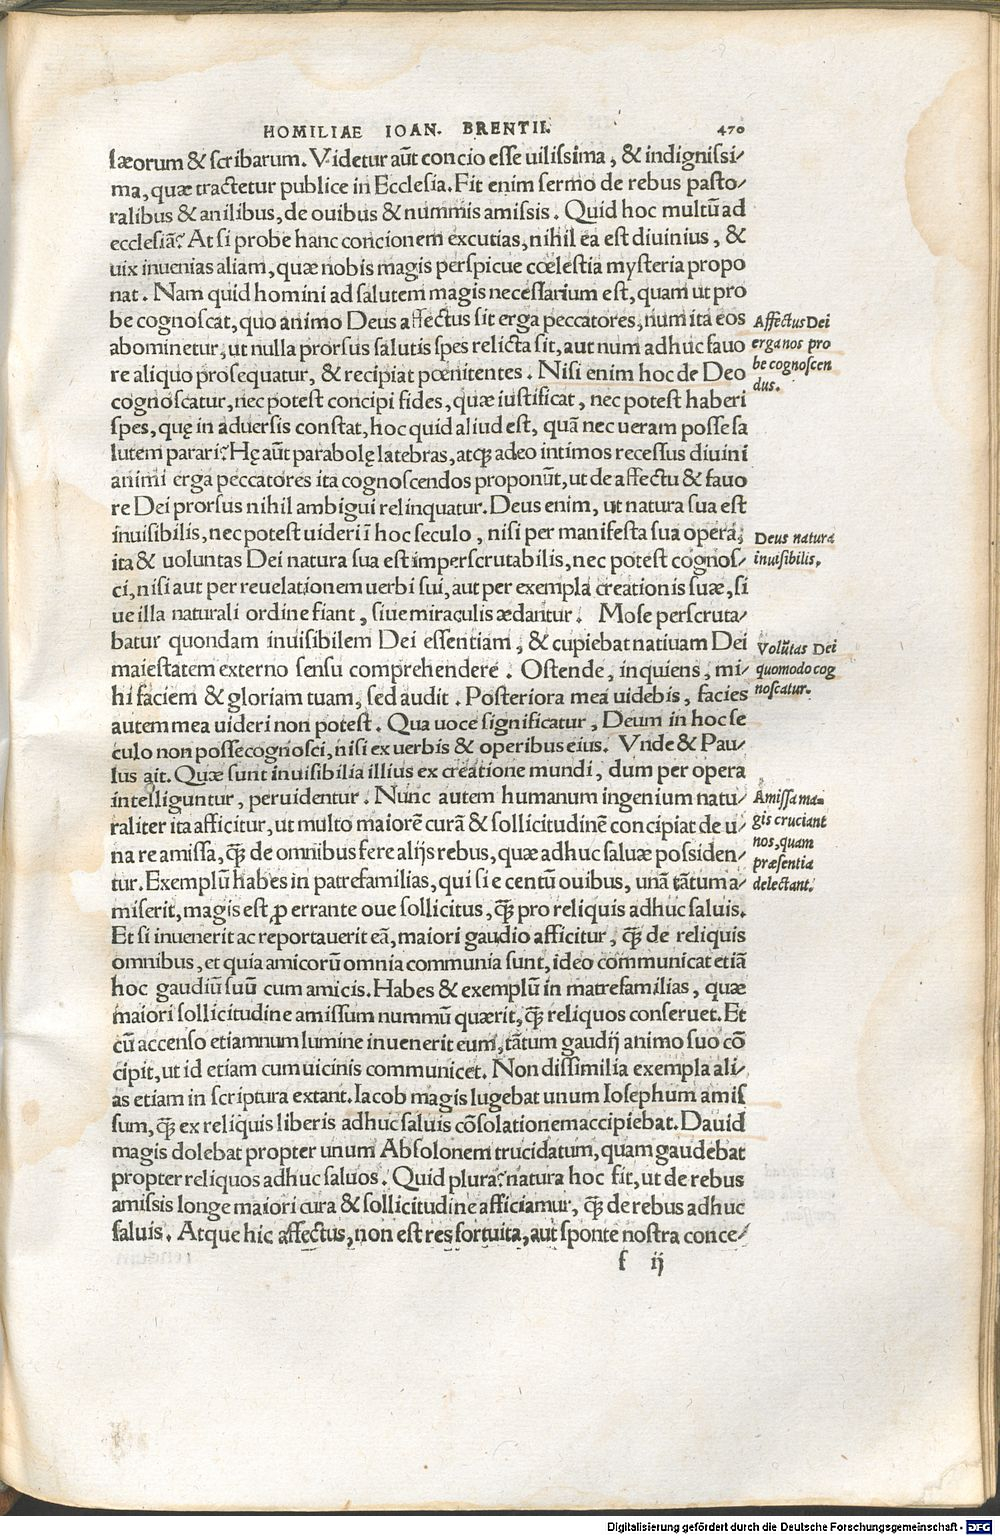 HOMILIAE IOAN. BRENTII. 470
læorum & scribarum. Videtur aūt concio esse uilissima, & indignissi/
ma, quæ tractetur publice in Ecclesia. Fit enim sermo de rebus pasto/
ralibus & anilibus, de ouibus & nummis amissis. Quid hoc multū ad
ecclesiā? At si probe hanc concionem excutias, nihil ea est diuinius, &
uix inuenias aliam, quæ nobis magis perspicue cœlestia mysteria propo
nat. Nam quid homini ad salutem magis necessarium est, quam ut pro
be cognoscat, quo animo Deus affectus sit erga peccatores, num ita eos
abominetur, ut nulla prorsus salutis spes relicta sit, aut num adhuc fauo
re aliquo prosequatur, & recipiat pœnitentes. Nisi enim hoc de Deo
cognoscatur, nec potest concipi fides, quæ iustificat, nec potest haberi
spes, quę in aduersis constat, hoc quid aliud est, quā nec ueram posse sa
lutem parari? Hę aūt parabolę latebras, atq; adeo intimos recessus diuini
animi erga peccatores ita cognoscendos proponūt, ut de affectu & fauo
re Dei prorsus nihil ambigui relinquatur. Deus enim, ut natura sua est
inuisibilis, nec potest uideri ī hoc seculo, nisi per manifesta sua opera,
ita & uoluntas Dei natura sua est imperscrutabilis, nec potest cognos/
ci, nisi aut per reuelationem uerbi sui, aut per exempla creationis suæ, si
ue illa naturali ordine fiant, siue miraculis ædantur. Mose perscruta/
batur quondam inuisibilem Dei essentiam, & cupiebat natiuam Dei
maiestatem externo sensu comprehendere. Ostende, inquiens, mi/
hi faciem & gloriam tuam, sed audit. Posteriora mea uidebis, facies
autem mea uideri non potest. Qua uoce significatur, Deum in hoc se
culo non posse cognosci, nisi ex uerbis & operibus eius. Vnde & Pau/
lus ait. Quæ sunt inuisibilia illius ex creatione mundi, dum per opera
intelliguntur, peruidentur. Nunc autem humanum ingenium natu/
raliter ita afficitur, ut multo maiorē curā & sollicitudinē concipiat de u/
na re amissa, q̄; de omnibus fere alijs rebus, quæ adhuc saluæ possiden/
tur. Exemplū habes in patrefamilias, qui si e centū ouibus, unā tātum a/
miserit, magis est ꝓ errante oue sollicitus, q̄; pro reliquis adhuc saluis.
Et si inuenerit ac reportauerit eā, maiori gaudio afficitur, q̄; de reliquis
omnibus, et quia amicorū omnia communia sunt, ideo communicat etiā
hoc gaudiū suū cum amicis. Habes & exemplū in matrefamilias, quæ
maiori sollicitudine amissum nummū quærit, q̄; reliquos conseruet. Et
cū accenso etiamnum lumine inuenerit eum, tātum gaudij animo suo cō
cipit, ut id etiam cum uicinis communicet. Non dissimilia exempla ali/
as etiam in scriptura extant. Iacob magis lugebat unum Iosephum amis
sum, q̄; ex reliquis liberis adhuc saluis cōsolationem accipiebat. Dauid
magis dolebat propter unum Absolonem trucidatum, quam gaudebat
propter reliquos adhuc saluos. Quid plura? natura hoc fit, ut de rebus
amissis longe maiori cura & sollicitudine afficiamur, q̄; de rebus adhuc
saluis. Atque hic affectus, non est res fortuita, aut sponte nostra conce/
f ij
Affectus Dei
erga nos pro
be cognoscen
dus.
Deus natura
inuisibilis.
Volūtas Dei
quomodo cog
noscatur.
Amissa ma=
gis cruciant
nos, quam
præsentia
delectant.
Digitalisierung gefördert durch die Deutsche Forschungsgemeinschaft - DFG